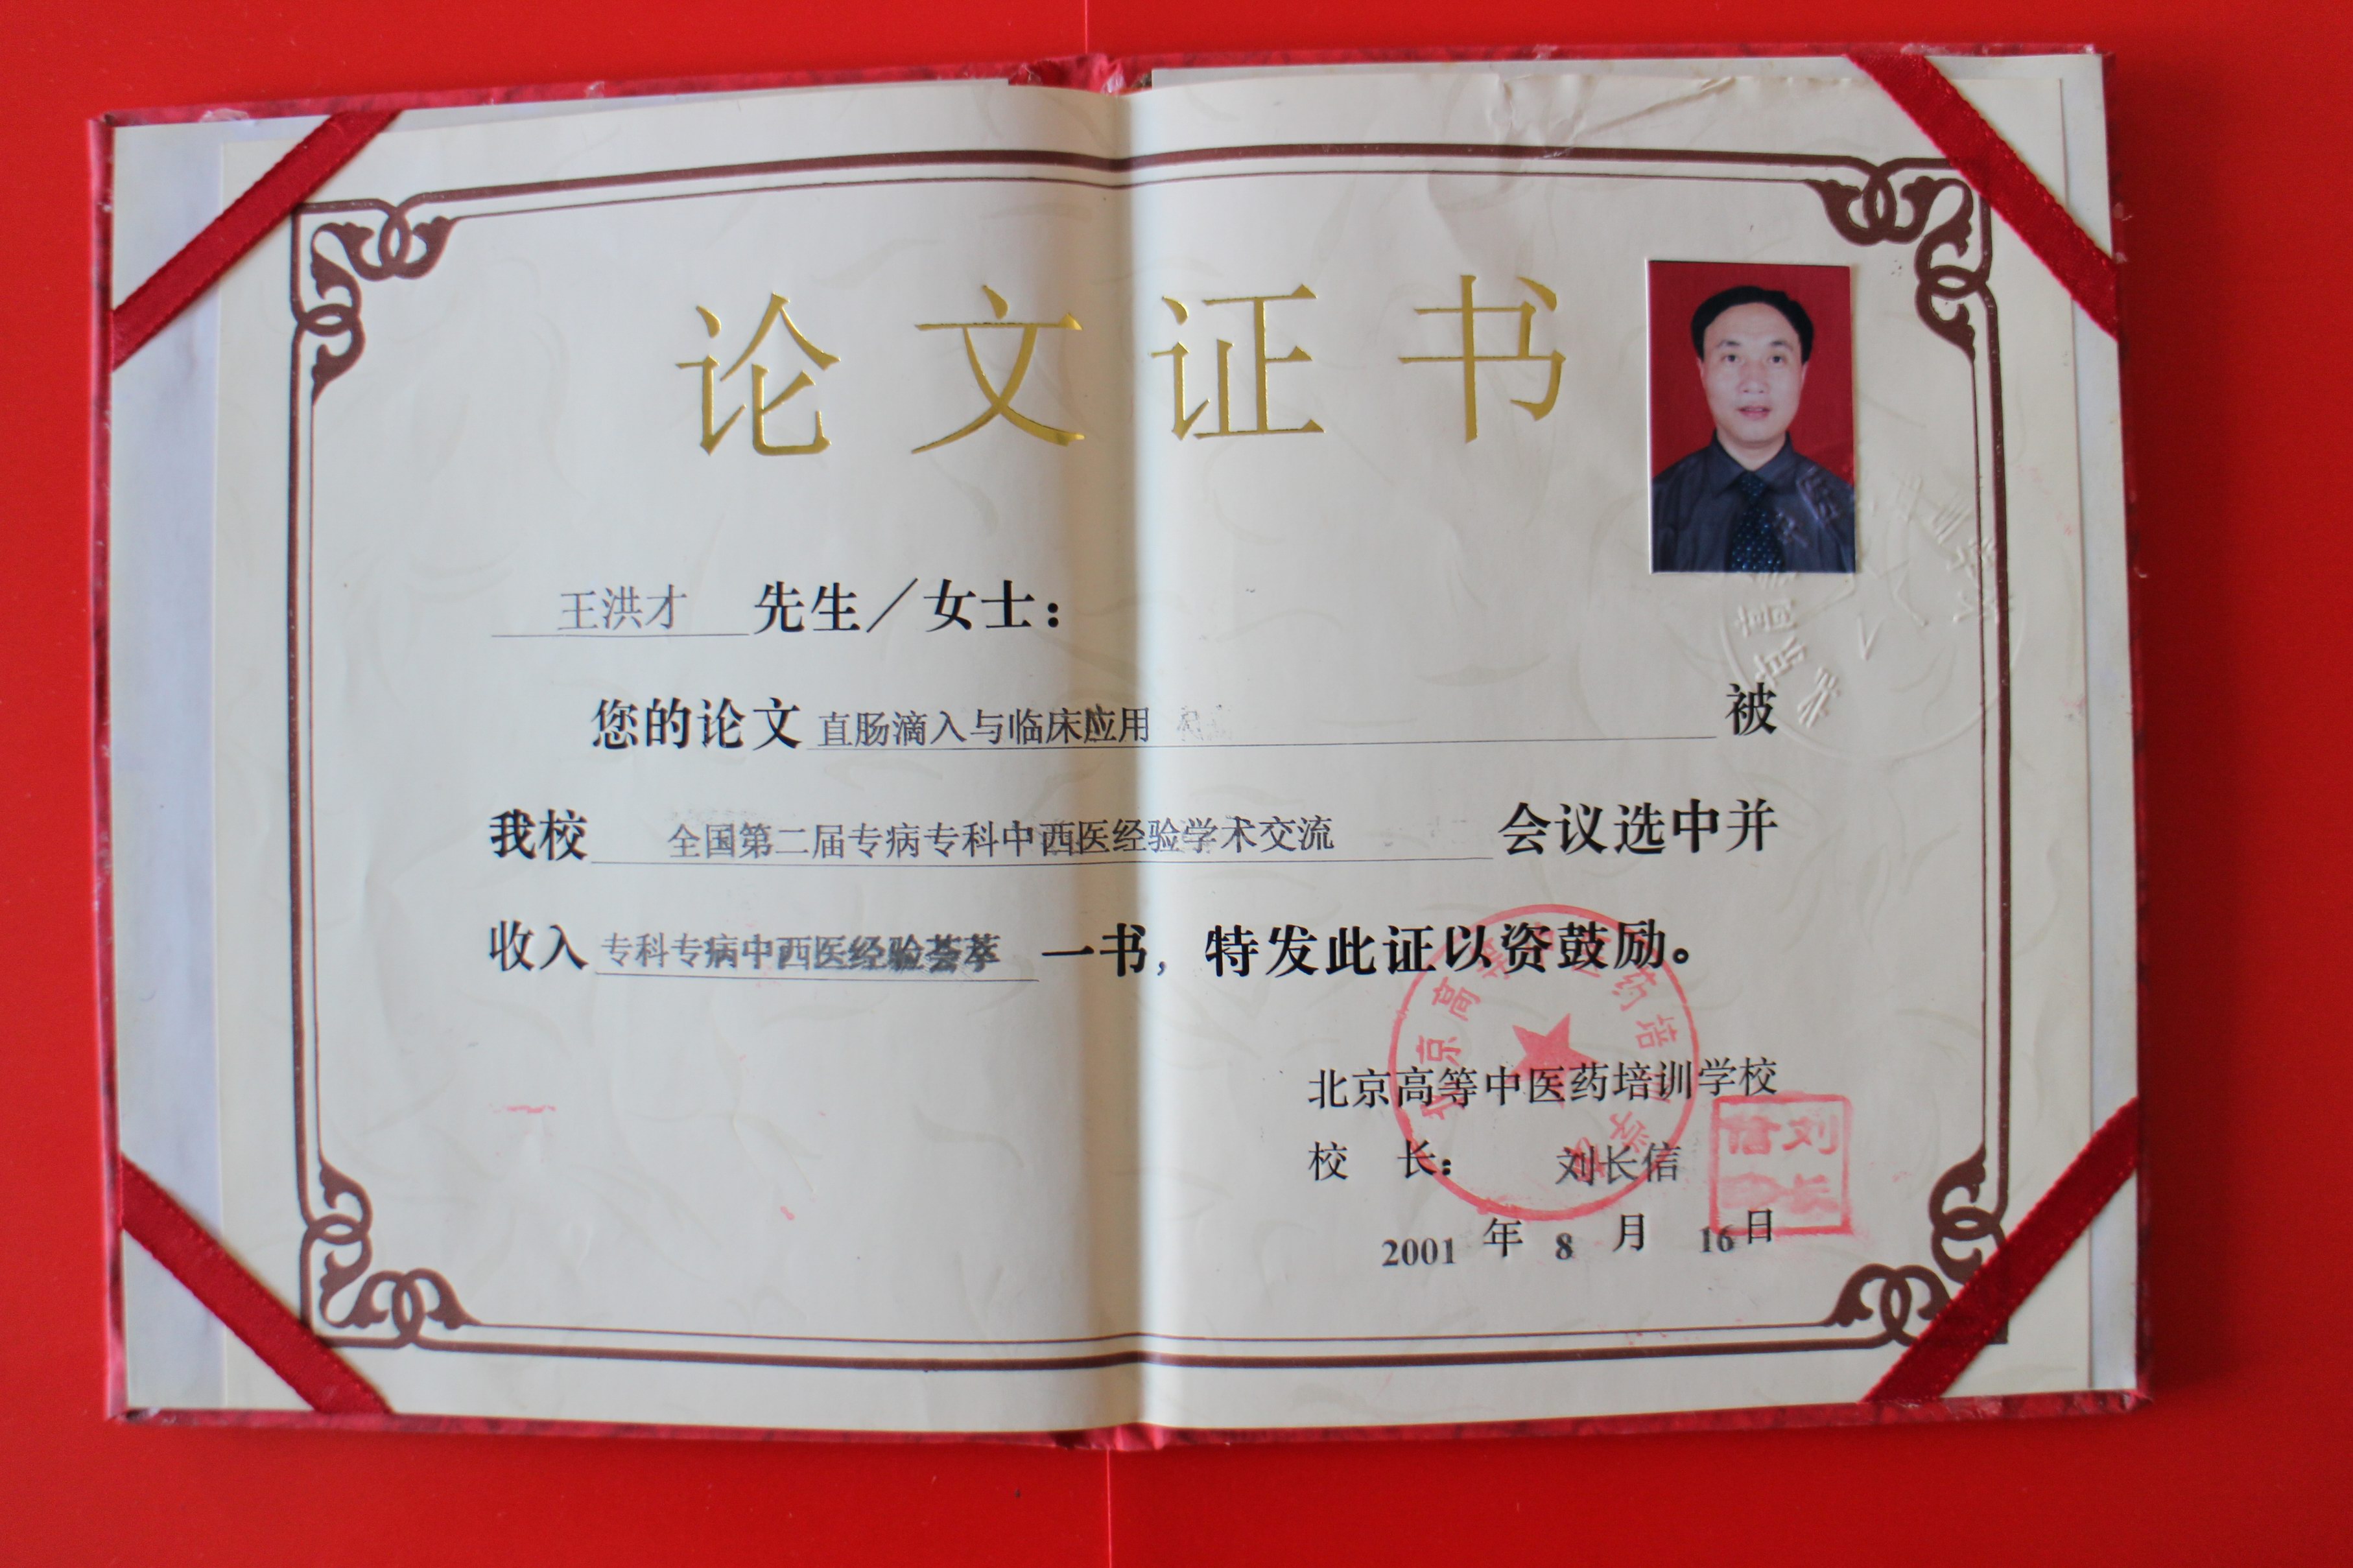 论文证书
王洪才 先生／女士：
您的论文 直肠滴入与临床应用 被
我校 全国第二届专病专科中西医经验学术交流 会议选中并
收入 专科专病中西医经验荟萃 一书，特发此证以资鼓励。
北京高等中医药培训学校
校 长： 刘长信
2001 年 8 月 16 日